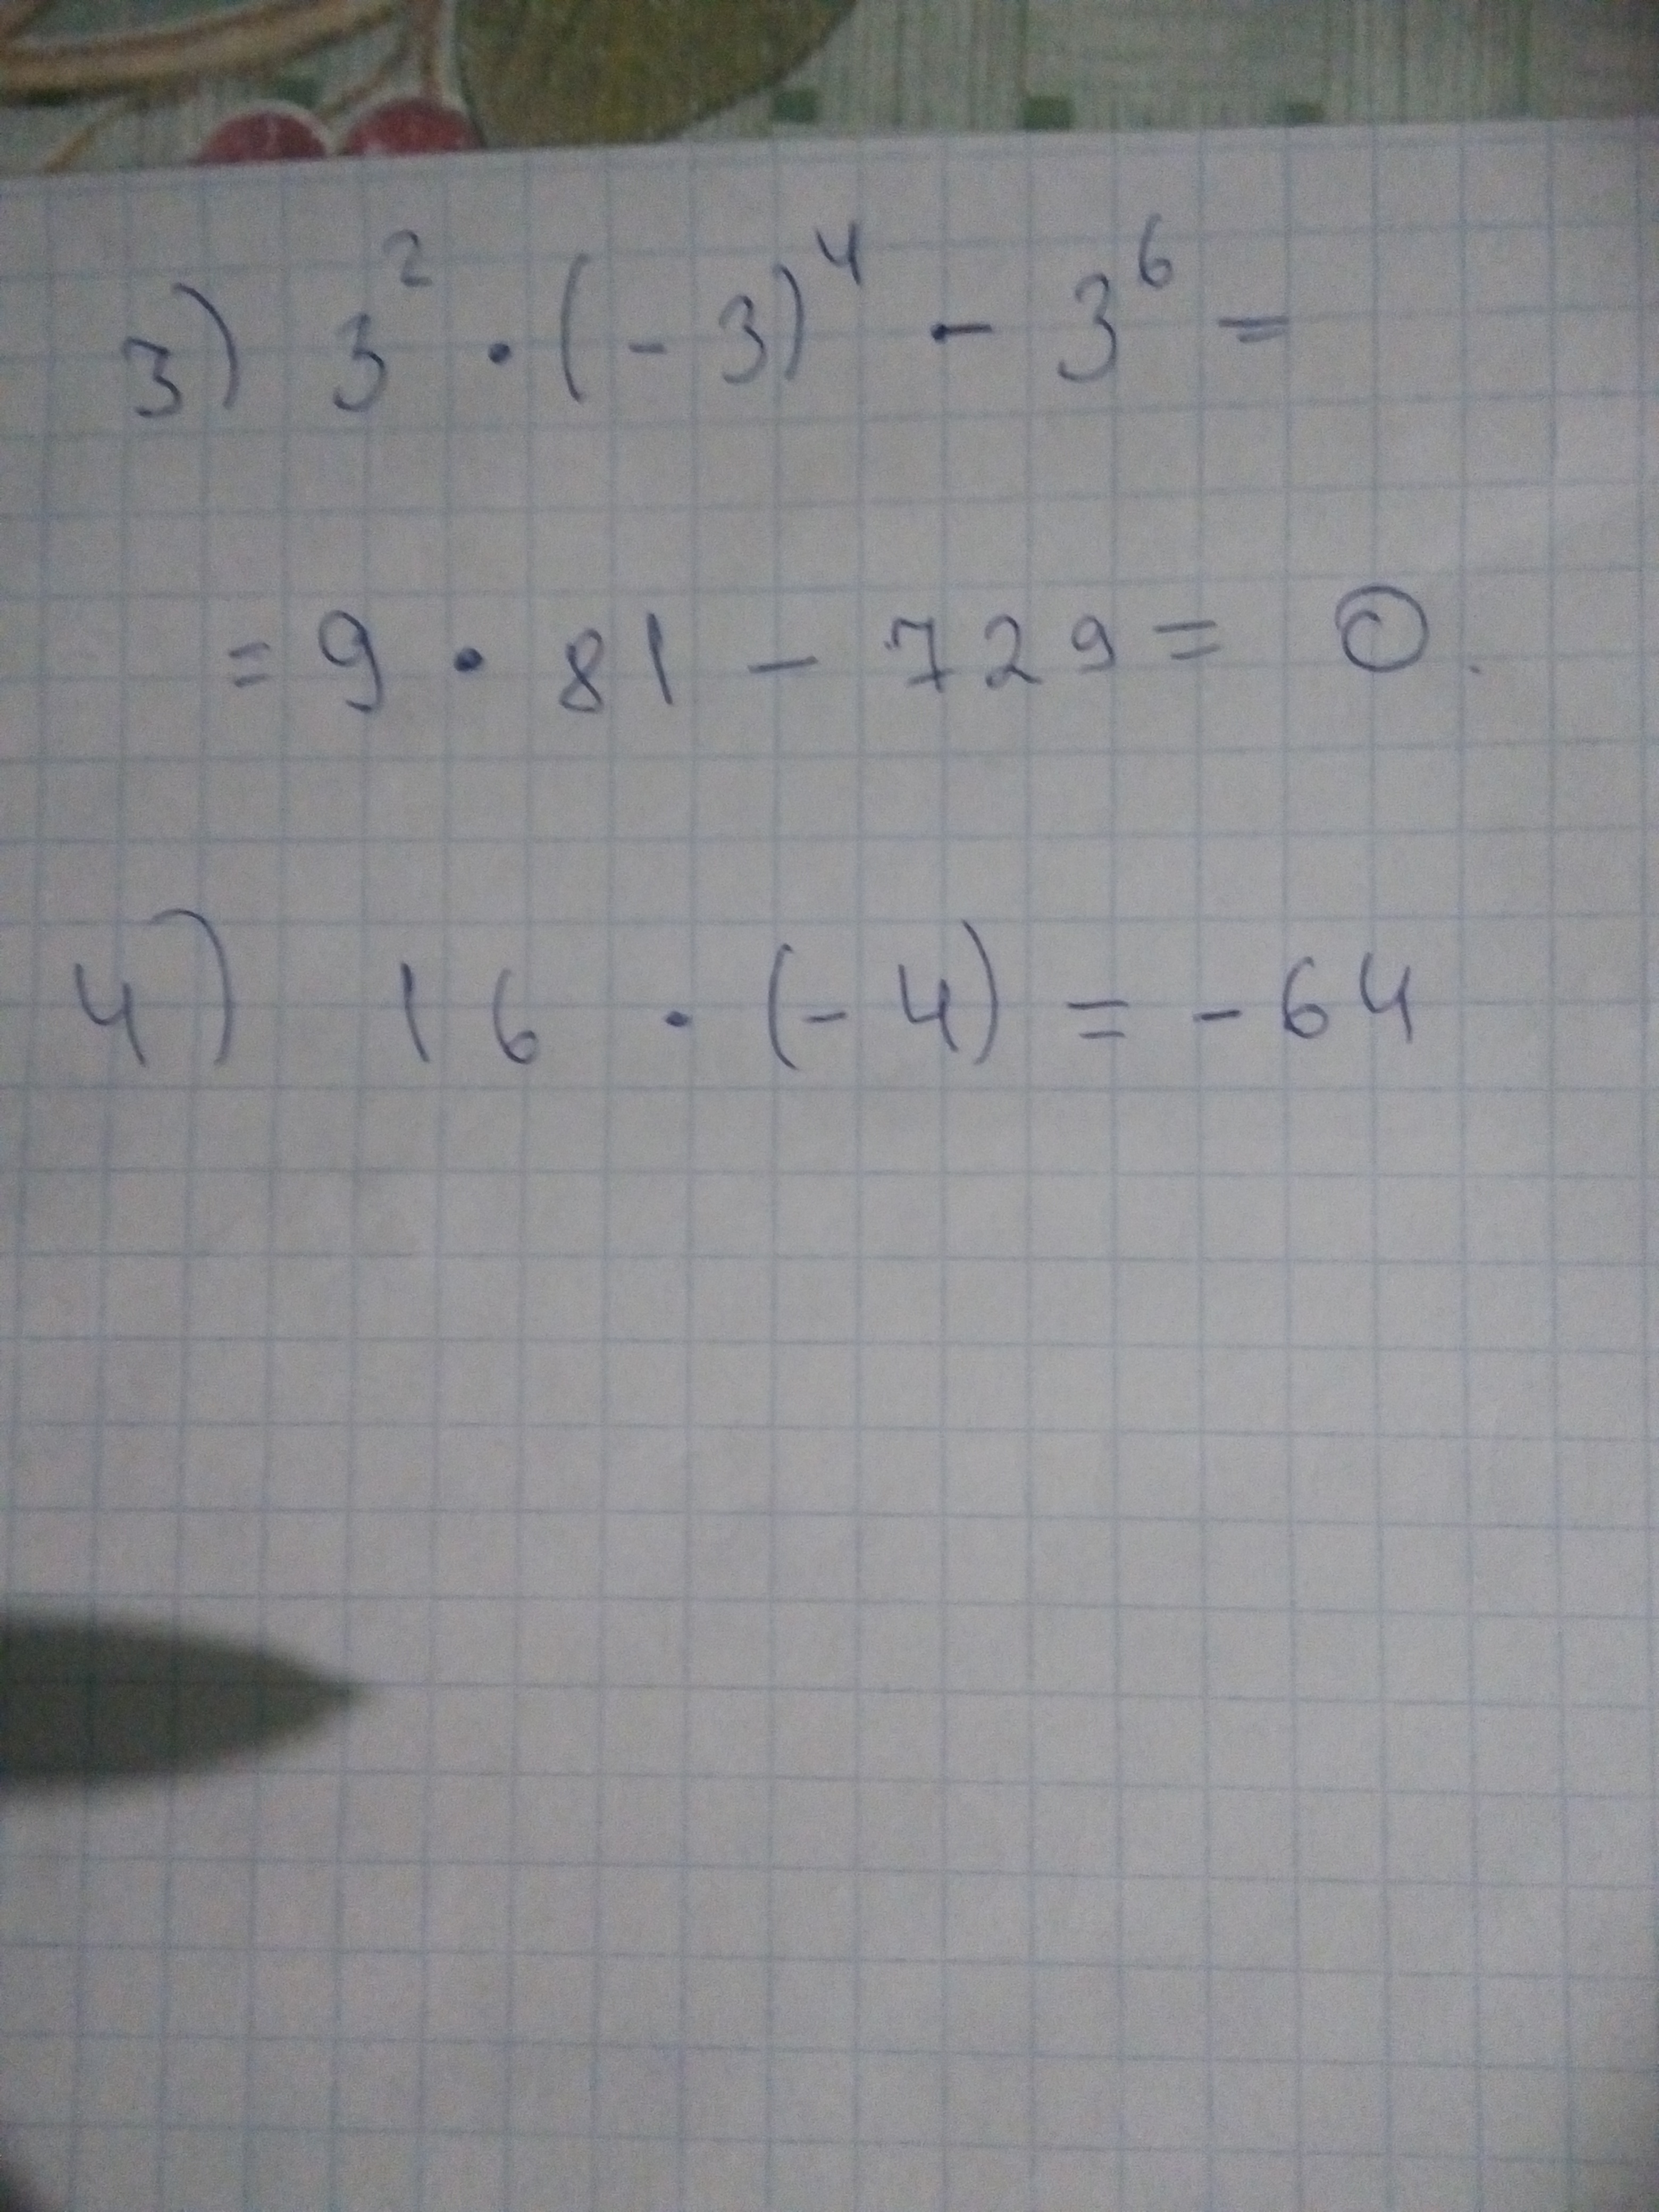 3) 3² · (-3)⁴ - 3⁶ =
= 9 · 81 - 729 = 0.
4) 16 · (-4) = -64